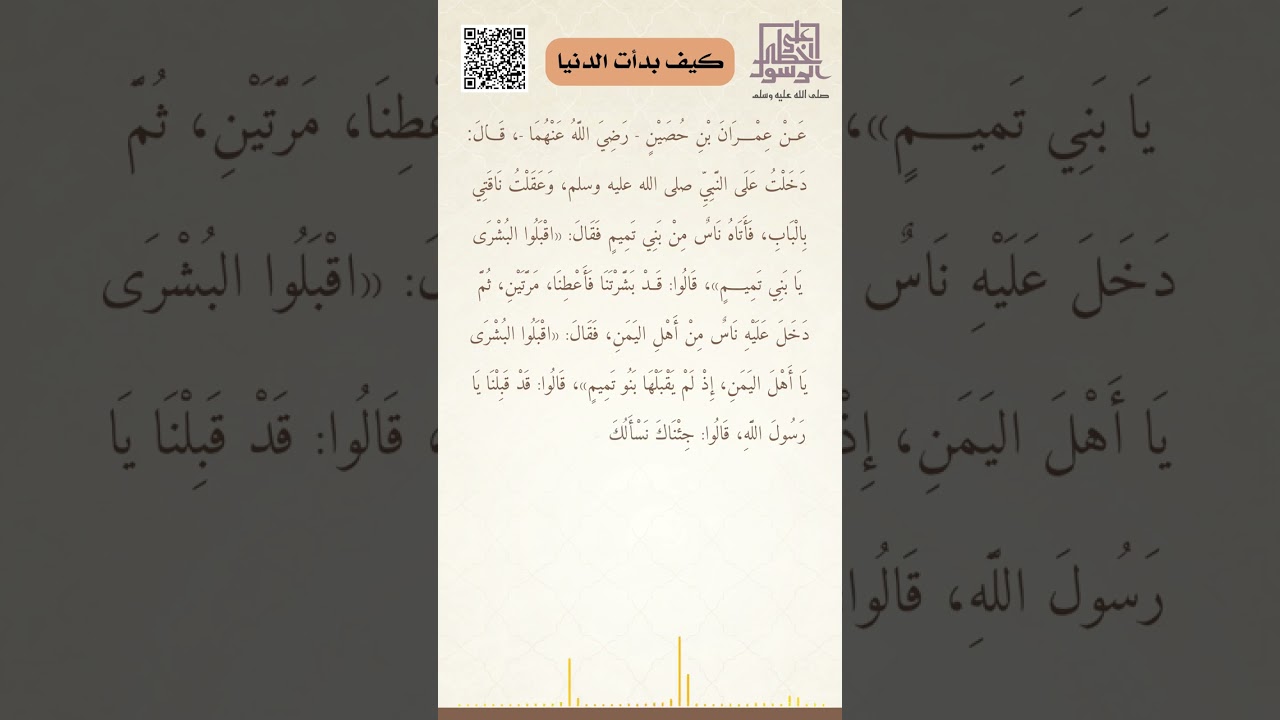 على خطا الرسول
صلى الله عليه وسلم
كيف بدأت الدنيا
عَـنْ عِمْـــرَانَ بْنِ حُصَيْنٍ - رَضِيَ اللَّهُ عَنْهُمَا -، قَــالَ:
دَخَلْتُ عَلَى النَّبِيِّ صلى الله عليه وسلم، وَعَقَلْتُ نَاقَتِي
بِالْبَابِ، فَأَتَاهُ نَاسٌ مِنْ بَنِي تَمِيمٍ فَقَالَ: «اقْبَلُوا البُشْرَى
يَا بَنِي تَمِيــــمٍ»، قَالُوا: قَــدْ بَشَّرْتَنَا فَأَعْطِنَا، مَرَّتَيْنِ، ثُمَّ
دَخَلَ عَلَيْهِ نَاسٌ مِنْ أَهْلِ اليَمَنِ، فَقَالَ: «اقْبَلُوا البُشْرَى
يَا أَهْلَ اليَمَنِ، إِذْ لَمْ يَقْبَلْهَا بَنُو تَمِيمٍ»، قَالُوا: قَدْ قَبِلْنَا يَا
رَسُولَ اللَّهِ، قَالُوا: جِئْنَاكَ نَسْأَلُكَ